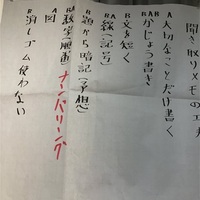 聞き取りメモの工夫
A 大切なことだけ書く
BAB かじょう書き
B 文を短く
BA 線(記号)
B 題から暗記(予想)
BA 数字(順番)ナンバリング
A 図
B 消しゴム使わない